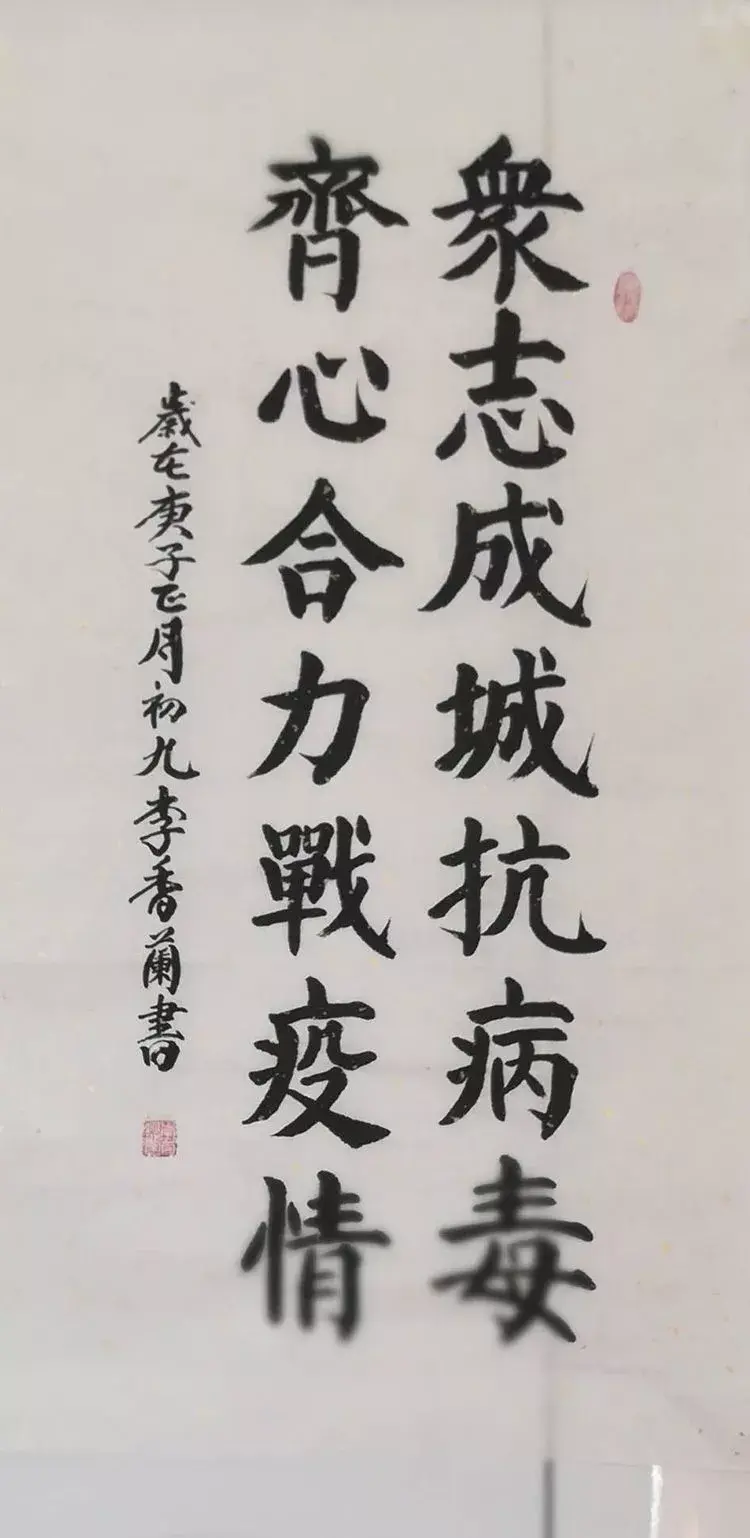 衆志成城抗病毒
齊心合力戰疫情
歲在庚子正月初九李香蘭書